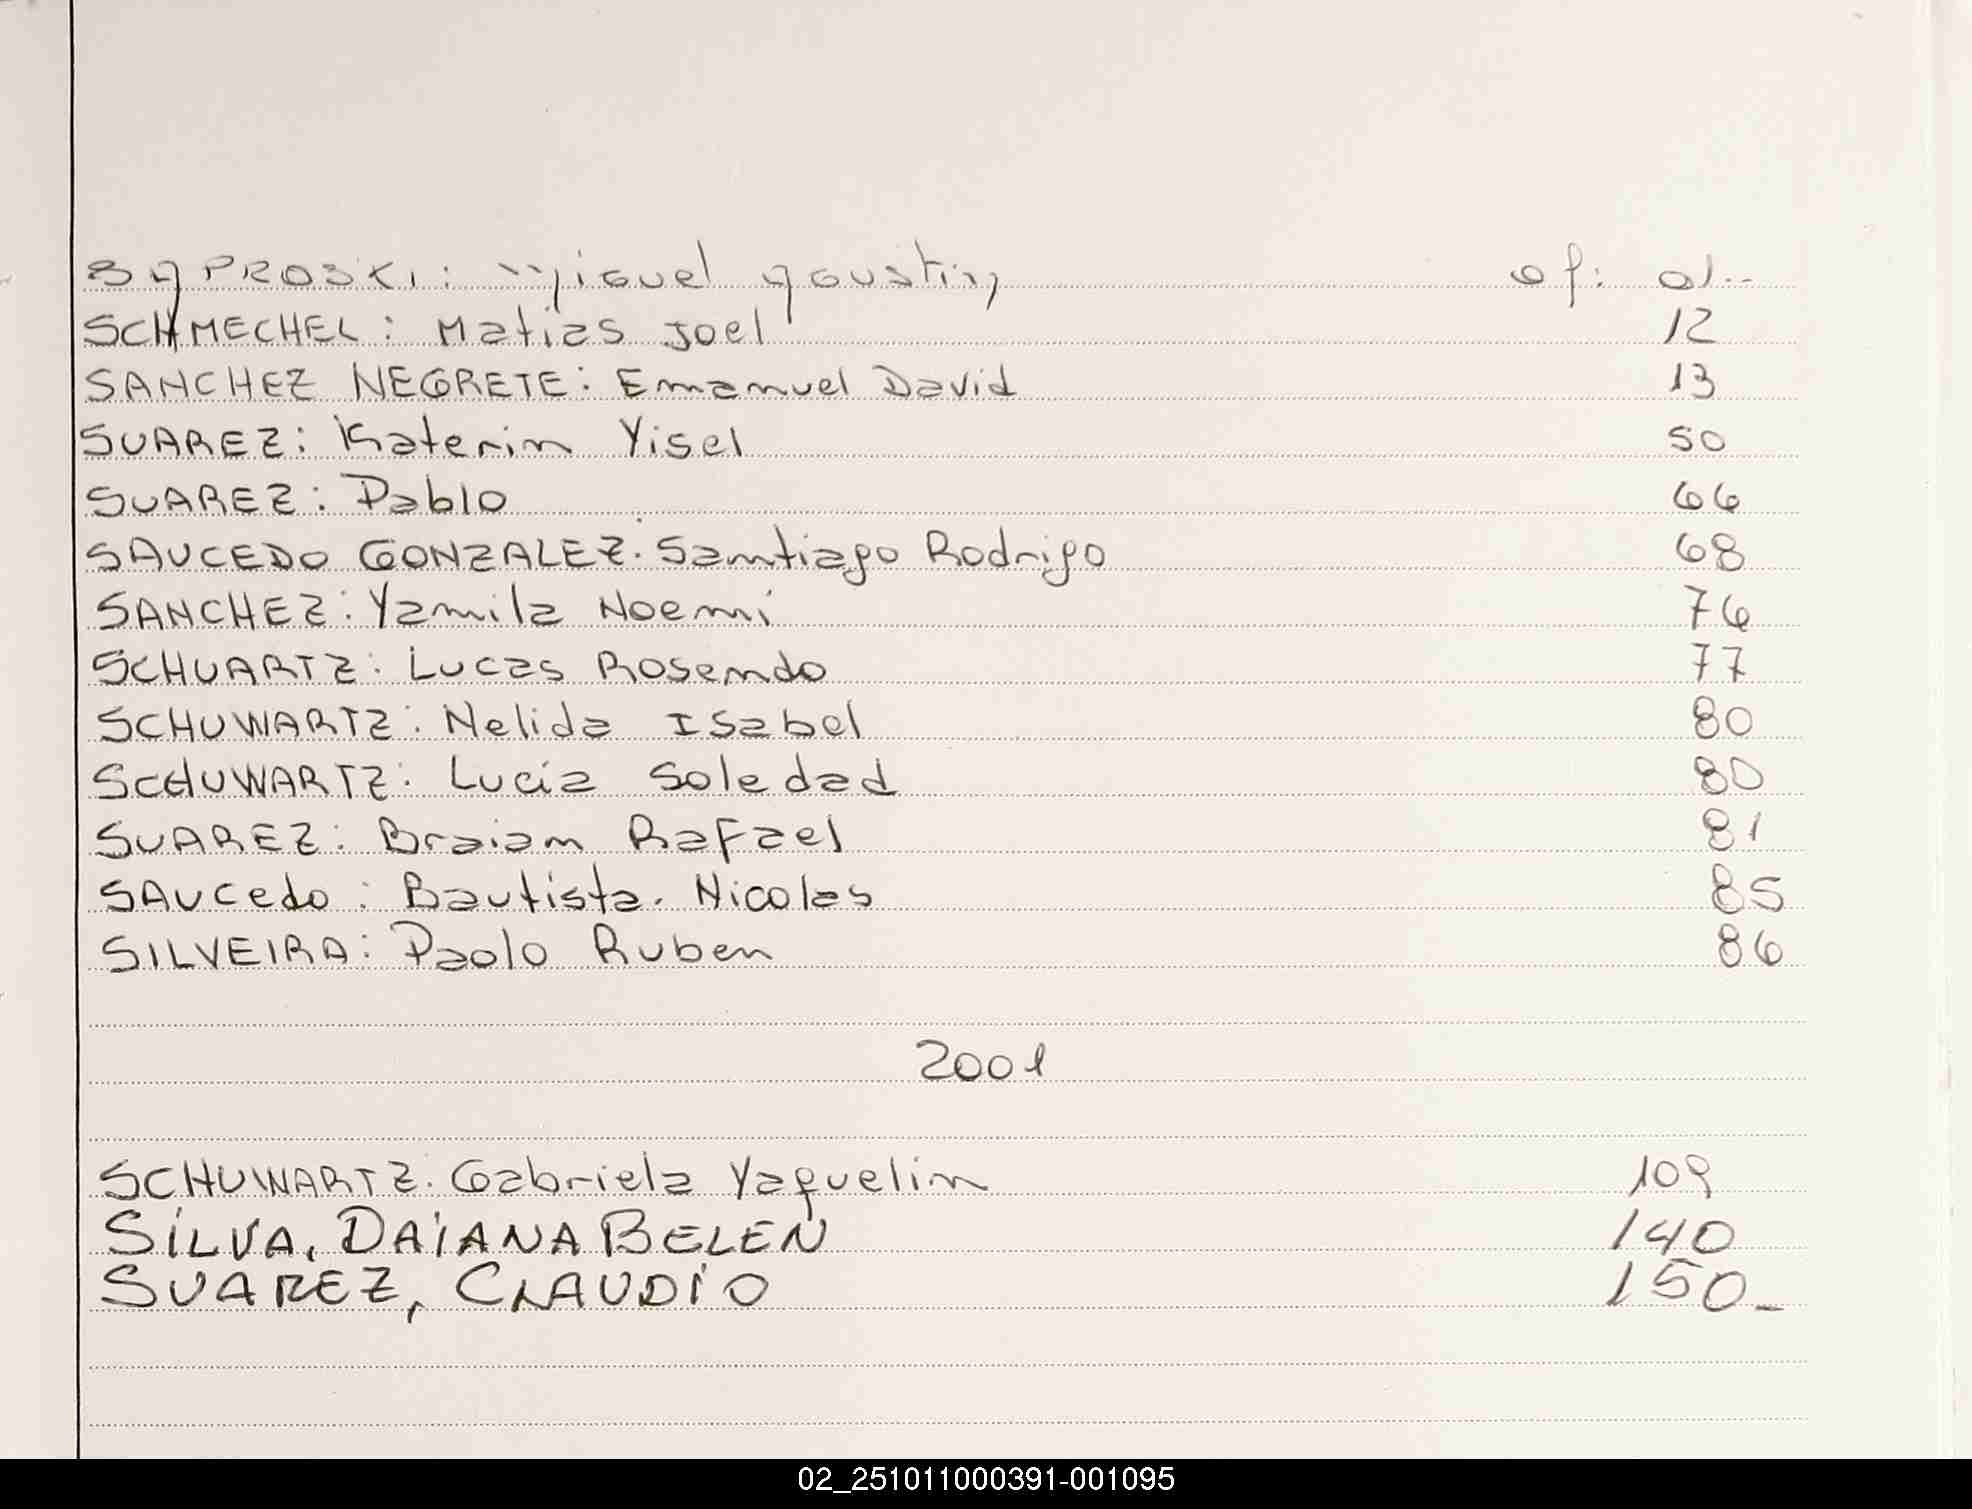 SAPROSKI: Miguel Agustin of: 01..
SCHMECHEL: Matias Joel 12
SANCHEZ NEGRETE: Emanuel David 13
SUAREZ: Katerin Yisel 50
SUAREZ: Pablo 66
SAUCEDO GONZALEZ. Santiago Rodrigo 68
SANCHEZ: Yamila Noemi 76
SCHUARTZ: Lucas Rosendo 77
SCHUWARTZ: Nelida Isabel 80
SCHUWARTZ: Lucia Soledad 80
SUAREZ: Braian Rafael 81
SAUCedo: Bautista. Nicolas 85
SILVEIRA: Paolo Ruben 86
2001
SCHUWARTZ. Gabriela Yaquelin 109
SILVA, DAIANA BELEN 140
SUAREZ, CLAUDIO 150_
02_251011000391-001095